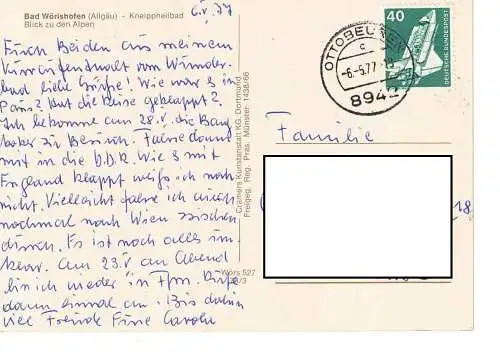 Bad Wörishofen (Allgäu) - Kneippheilbad
Blick zu den Alpen
6.V.77
Euch Beiden aus meinem
Kuraufenthalt vom
und liebe Grüße! Wie war's in
Paris? Hat die Reise geklappt?
Ich bekomme am 28.V. die
zu Besuch. Fahre dann
mit in die D.D.R. Wie's mit
England klappt weiß ich noch
nicht. Vielleicht fahre ich auch
nochmal nach Wien zwischen
durch. Es ist noch alles un-
klar. Am 23.V. am Abend
bin ich wieder in Ffm. Rufe
dann einmal an. Bis dahin
viel Freude Eure
Cramers Kunstanstalt KG, Dortmund
Freigeg. Reg. Präs. Münster 1438/66
Wörs 527
OTTOBEUREN
c
-6.-5.77-18
8942
40
DEUTSCHE BUNDESPOST
Familie
18